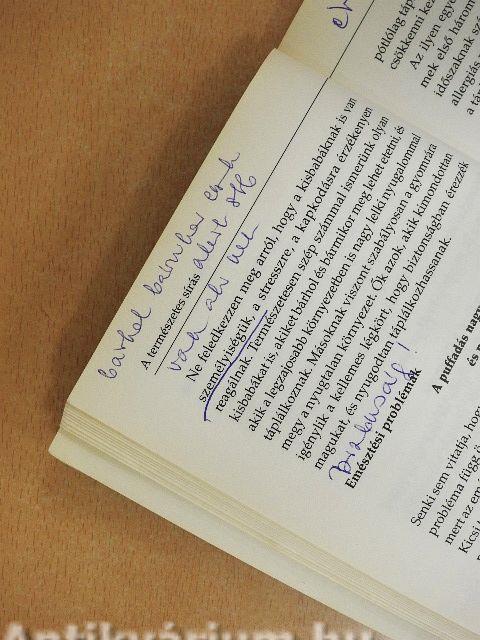 bárhol bármikor
A természetes sírás
Ne feledkezzen meg arról, hogy a kisbabáknak is van
személyiségük, a stresszre, a kapkodásra érzékenyen
reagálnak. Természetesen szép számmal ismerünk olyan
kisbabákat is, akiket bárhol és bármikor meg lehet etetni, és
akik a legzajosabb környezetben is nagy lelki nyugalommal
táplálkoznak. Másoknak viszont szabályosan a gyomrára
megy a nyugtalan környezet. Ők azok, akik kimondottan
igénylik a kellemes légkört, hogy biztonságban érezzék
magukat, és nyugodtan táplálkozhassanak.
Emésztési problémák
A puffadás nagy
és
Senki sem vitatja, hog
probléma függ ö
mert az em
Kicsi
pótlólag táp
csökkenni kez
Az ilyen egye
mek első három
időszaknak sz
allergiás
a táp
Antikvárium.hu